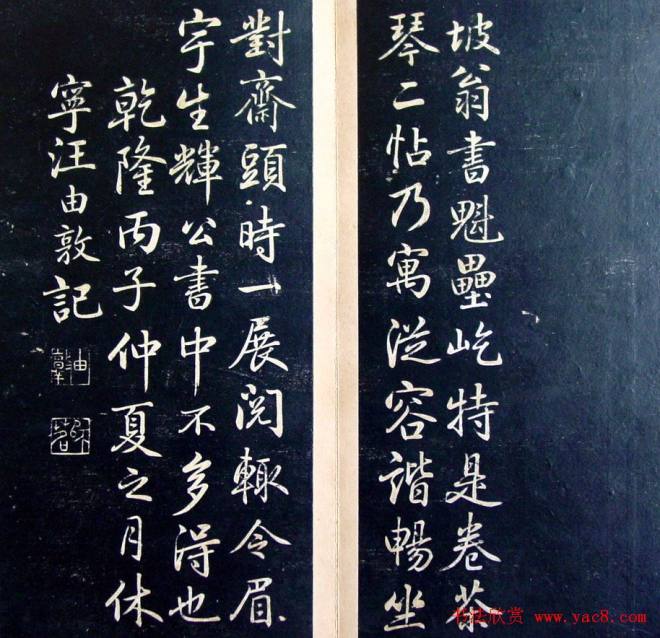 坡翁書魁壘屹特是卷茶
琴二帖乃寓從容諧暢坐
對齋頭時一展閱輙令眉
宇生輝公書中不多得也
乾隆丙子仲夏之月休
寧汪由敦記
书法欣赏 www.yac8.com